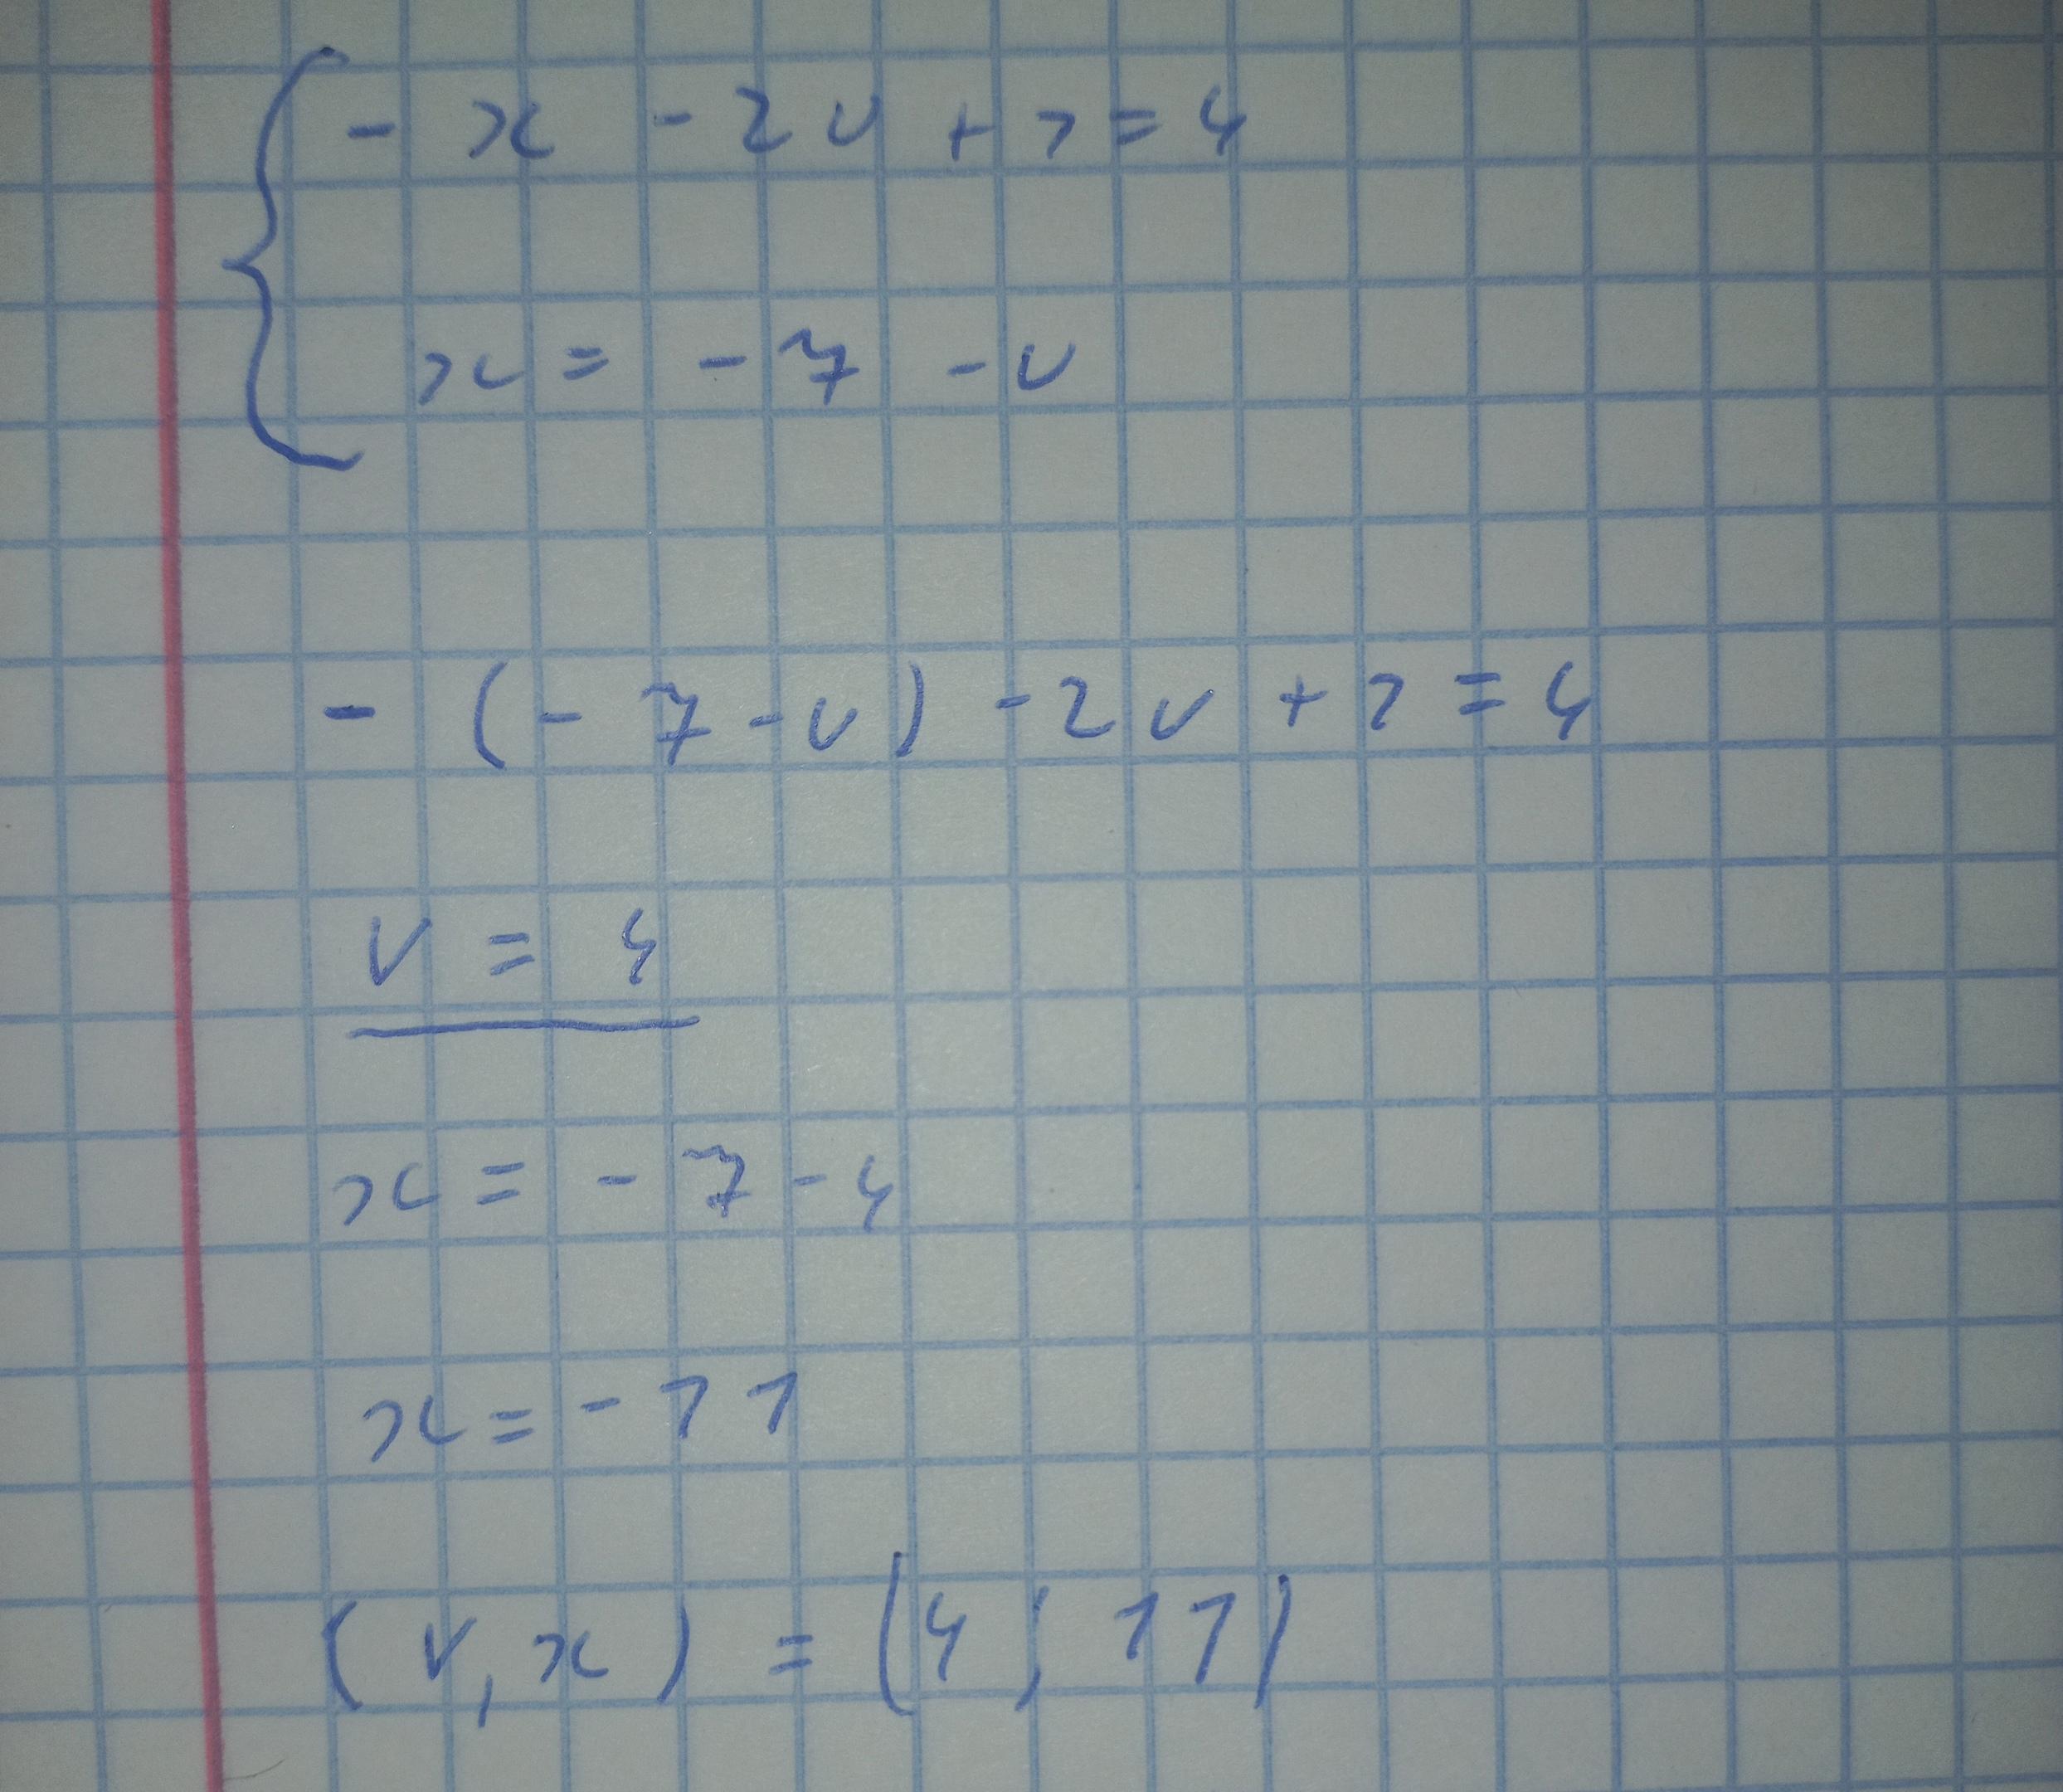 - x - 2v + 1 = 4
x = - 7 - v
- (- 7 - v) - 2v + 1 = 4
v = 4
x = - 7 - 4
x = - 11
(v, x) = (4, 11)